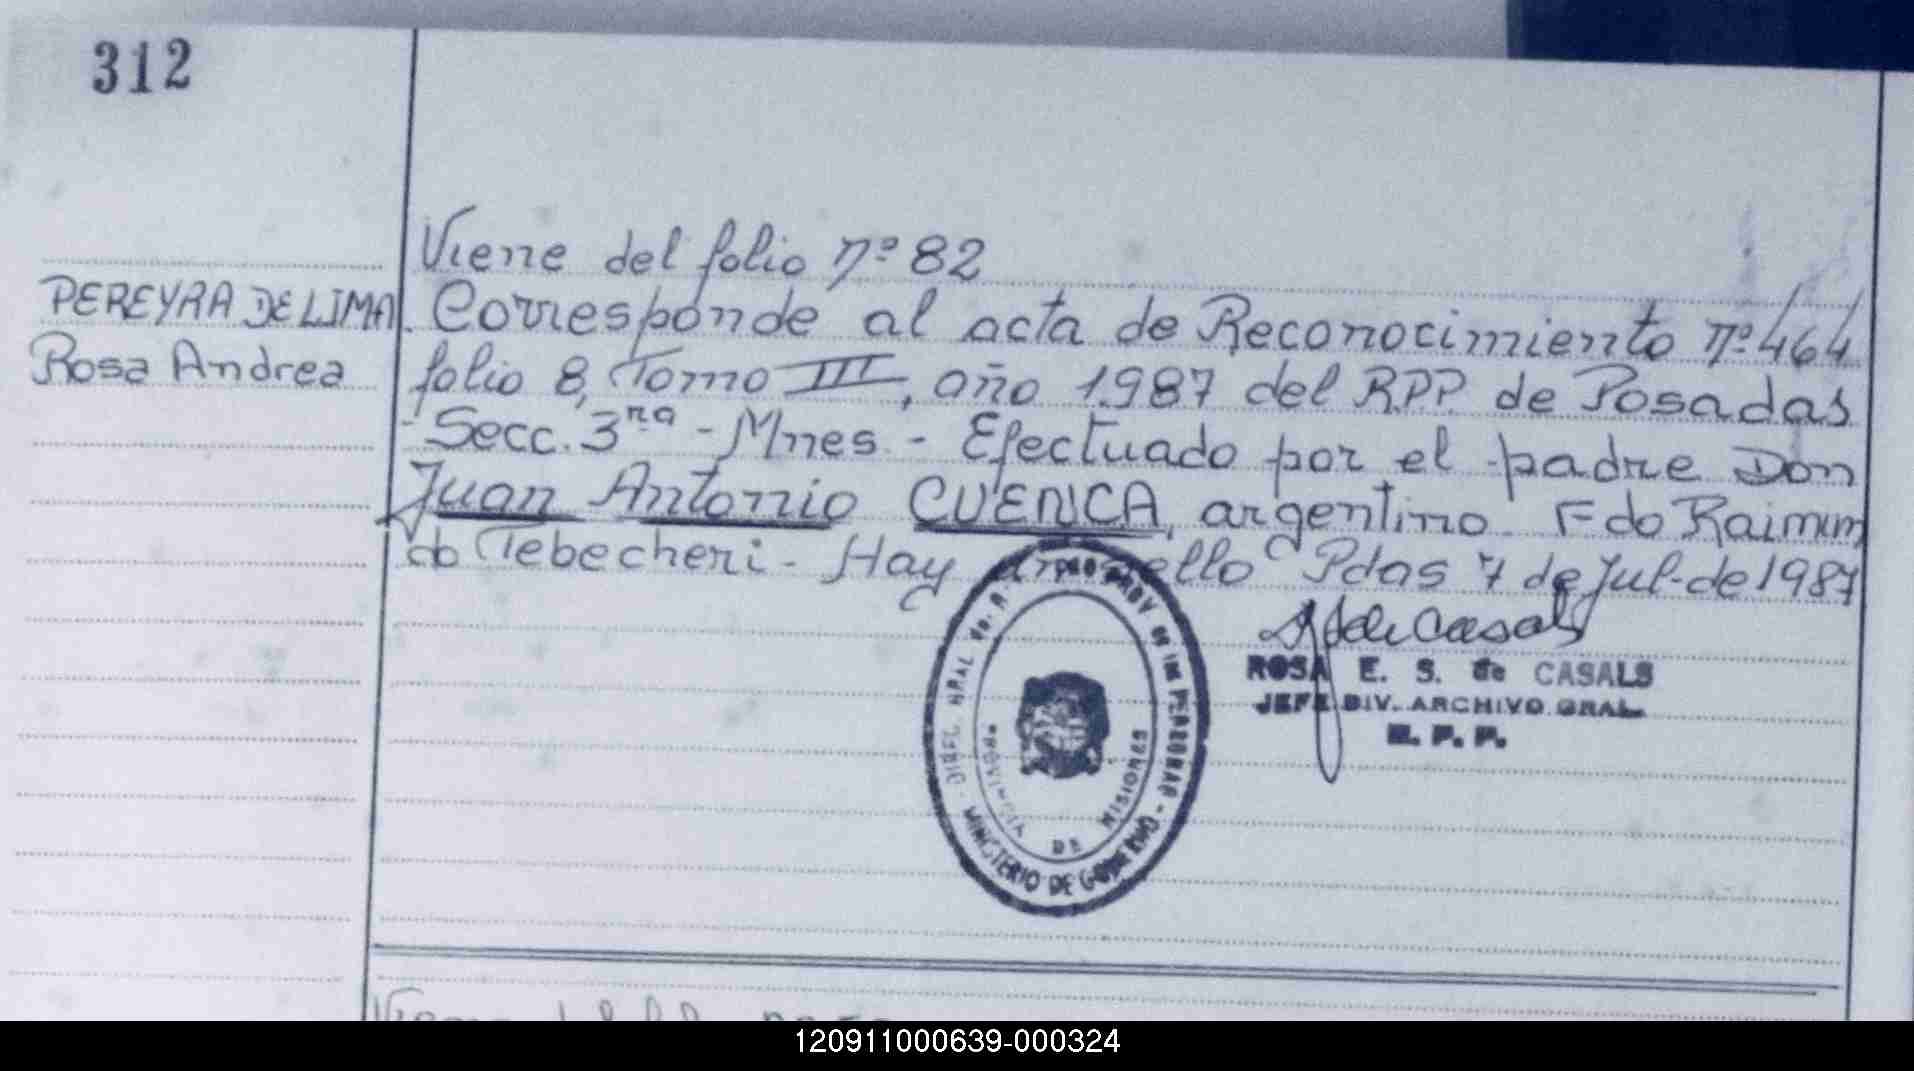 312
Viene del folio nº 82
PEREYRA DE LIMA
Rosa Andrea
Corresponde al acta de Reconocimiento nº 464
folio 8, Tomo III, año 1987 del R.P.P. de Posadas
-Secc. 3ra - Mnes. - Efectuado por el padre Don
Juan Antonio CUENCA, argentino. Fdo Raimun
do Tebecheri - Hay un sello Pdas 7 de Jul-de 1987
de Casals
ROSA E. S. de CASALS
JEFE DIV. ARCHIVO GRAL.
R. P. P.
MINISTERIO DE GOBIERNO
PROVINCIA DE MISIONES
120911000639-000324